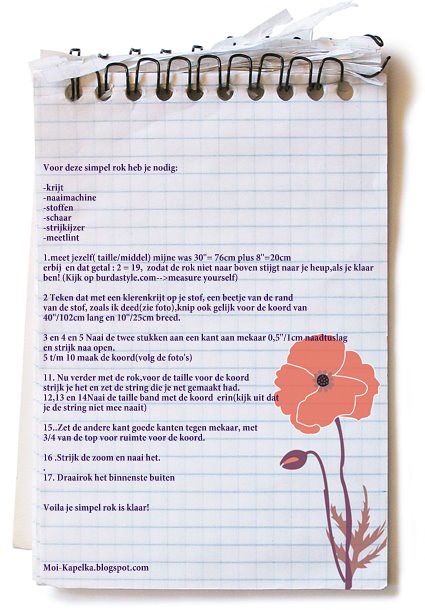 Voor deze simpel rok heb je nodig:
-krijt
-naaimachine
-stoffen
-schaar
-strijkijzer
-meetlint
1.meet jezelf( taille/middel) mijne was 30"= 76cm plus 8"=20cm
erbij en dat getal : 2 = 19, zodat de rok niet naar boven stijgt naar je heup,als je klaar
ben! (Kijk op burdastyle.com-->measure yourself)
2 Teken dat met een klerenkrijt op je stof, een beetje van de rand
van de stof, zoals ik deed(zie foto),knip ook gelijk voor de koord van
40"/102cm lang en 10"/25cm breed.
3 en 4 en 5 Naai de twee stukken aan een kant aan mekaar 0,5"/1cm naadtuslag
en strijk naa open.
5 t/m 10 maak de koord(volg de foto's)
11. Nu verder met de rok,voor de taille voor de koord
strijk je het en zet de string die je net gemaakt had.
12,13 en 14Naai de taille band met de koord erin(kijk uit dat
je de string niet mee naait)
15..Zet de andere kant goede kanten tegen mekaar, met
3/4 van de top voor ruimte voor de koord.
16 .Strijk de zoom en naai het.
.
17. Draairok het binnenste buiten
Voila je simpel rok is klaar!
Moi-Kapelka.blogspot.com